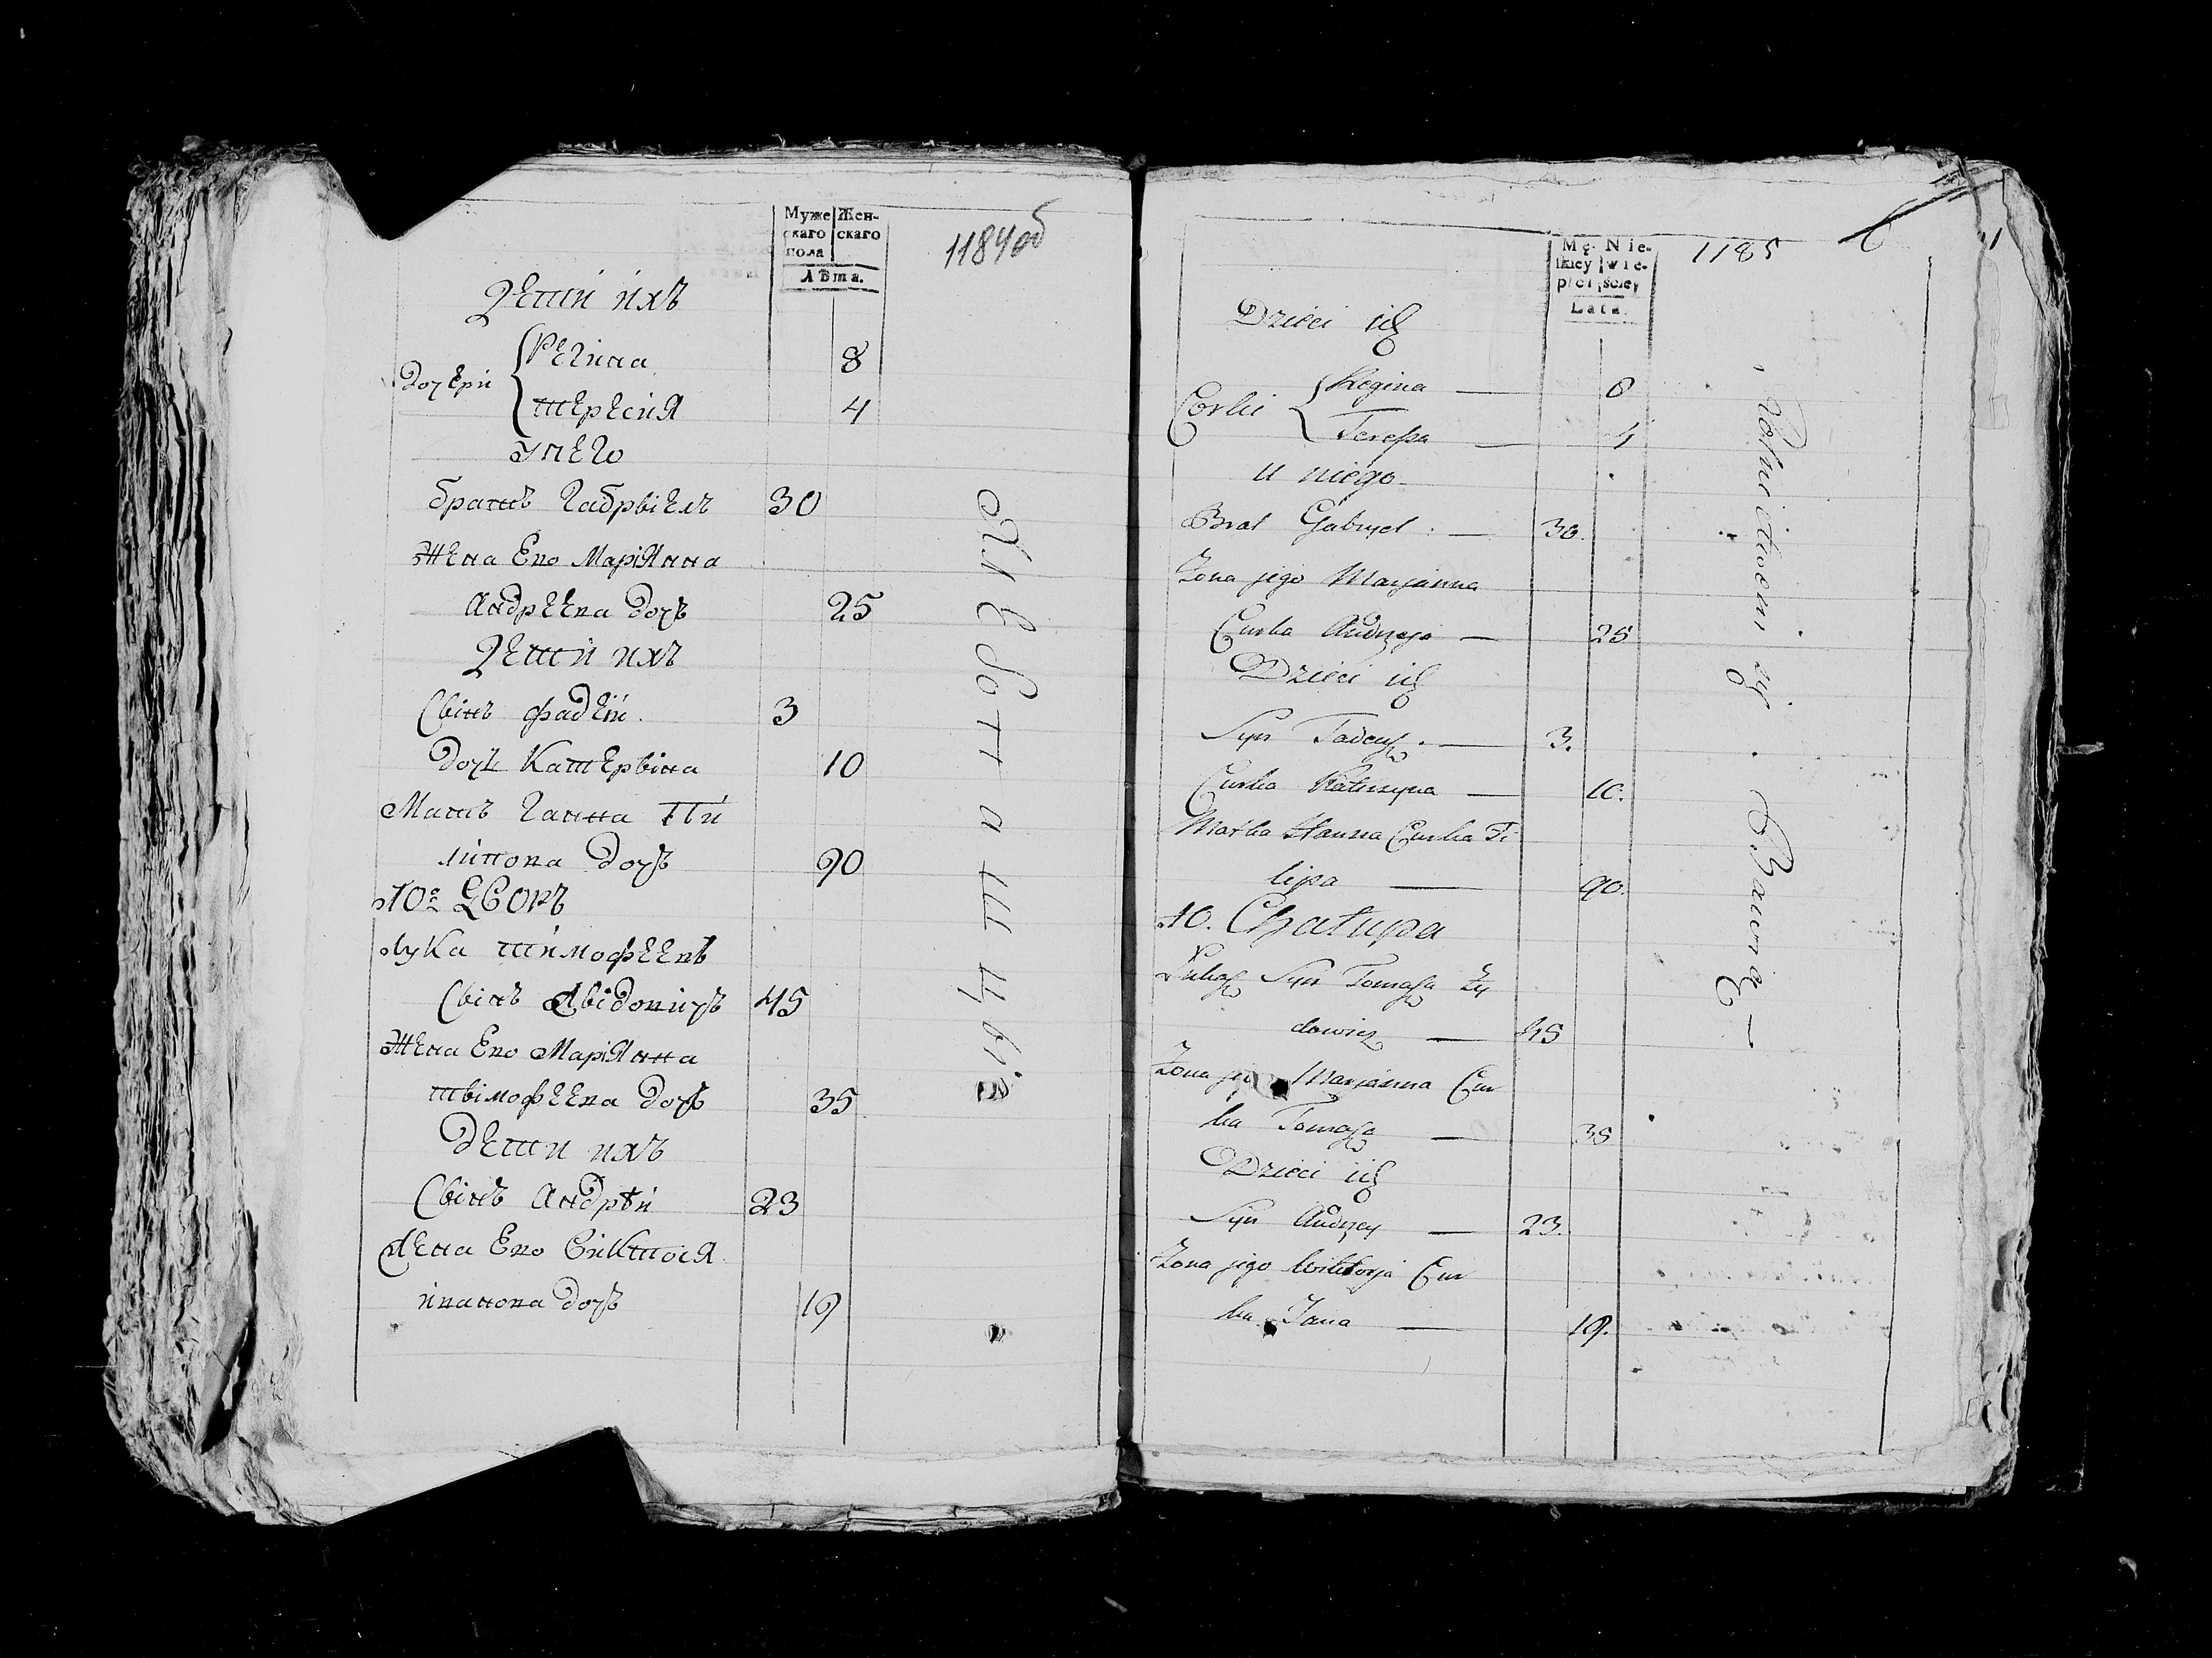 Муже Жен-
скаго скаго
пола
Лѣта.
1184об
Дети ихъ
дочери
Регина 8
Тересия 4
У него
братъ Габрыель 30
Жена Ево Марiянна
Андреева дочь 25
Дети ихъ
Сынъ Фадей 3
дочь Катерына 10
Мать Ганна Фи
липова дочь 90
№10º Дворъ
Лука Тимофеевъ
Сынъ Жыдовичь 45
Жена Ево Марiянна
Тымофеева дочь 35
Дети ихъ
Сынъ Андрѣй 23
Жена Ево Викто㏄ия
Иванова дочь 19
Mę- Nie-
skiey wie-
płci ściey
Lata.
1185
6
Dzieci ich
Corki
Regina — 8
Teressa — 4
u niego
Brat Gabryel — 30.
Zona jego Marjanna
Curka Andrzeja — 25
Dzieci ich
Syn Tadeusz — 3.
Curka Katerzyna — 10.
Matka Hanna Curka Fi
lipa — 90.
№10. Chałupa
Łukasz Syn Tomasza Zy
dowicz — 45
Zona jego Marjanna Cur
ka Tomasza — 35
Dzieci ich
Syn Andrzey — 23.
Zona jego Wiktorja Cur
ka Jana — 19.